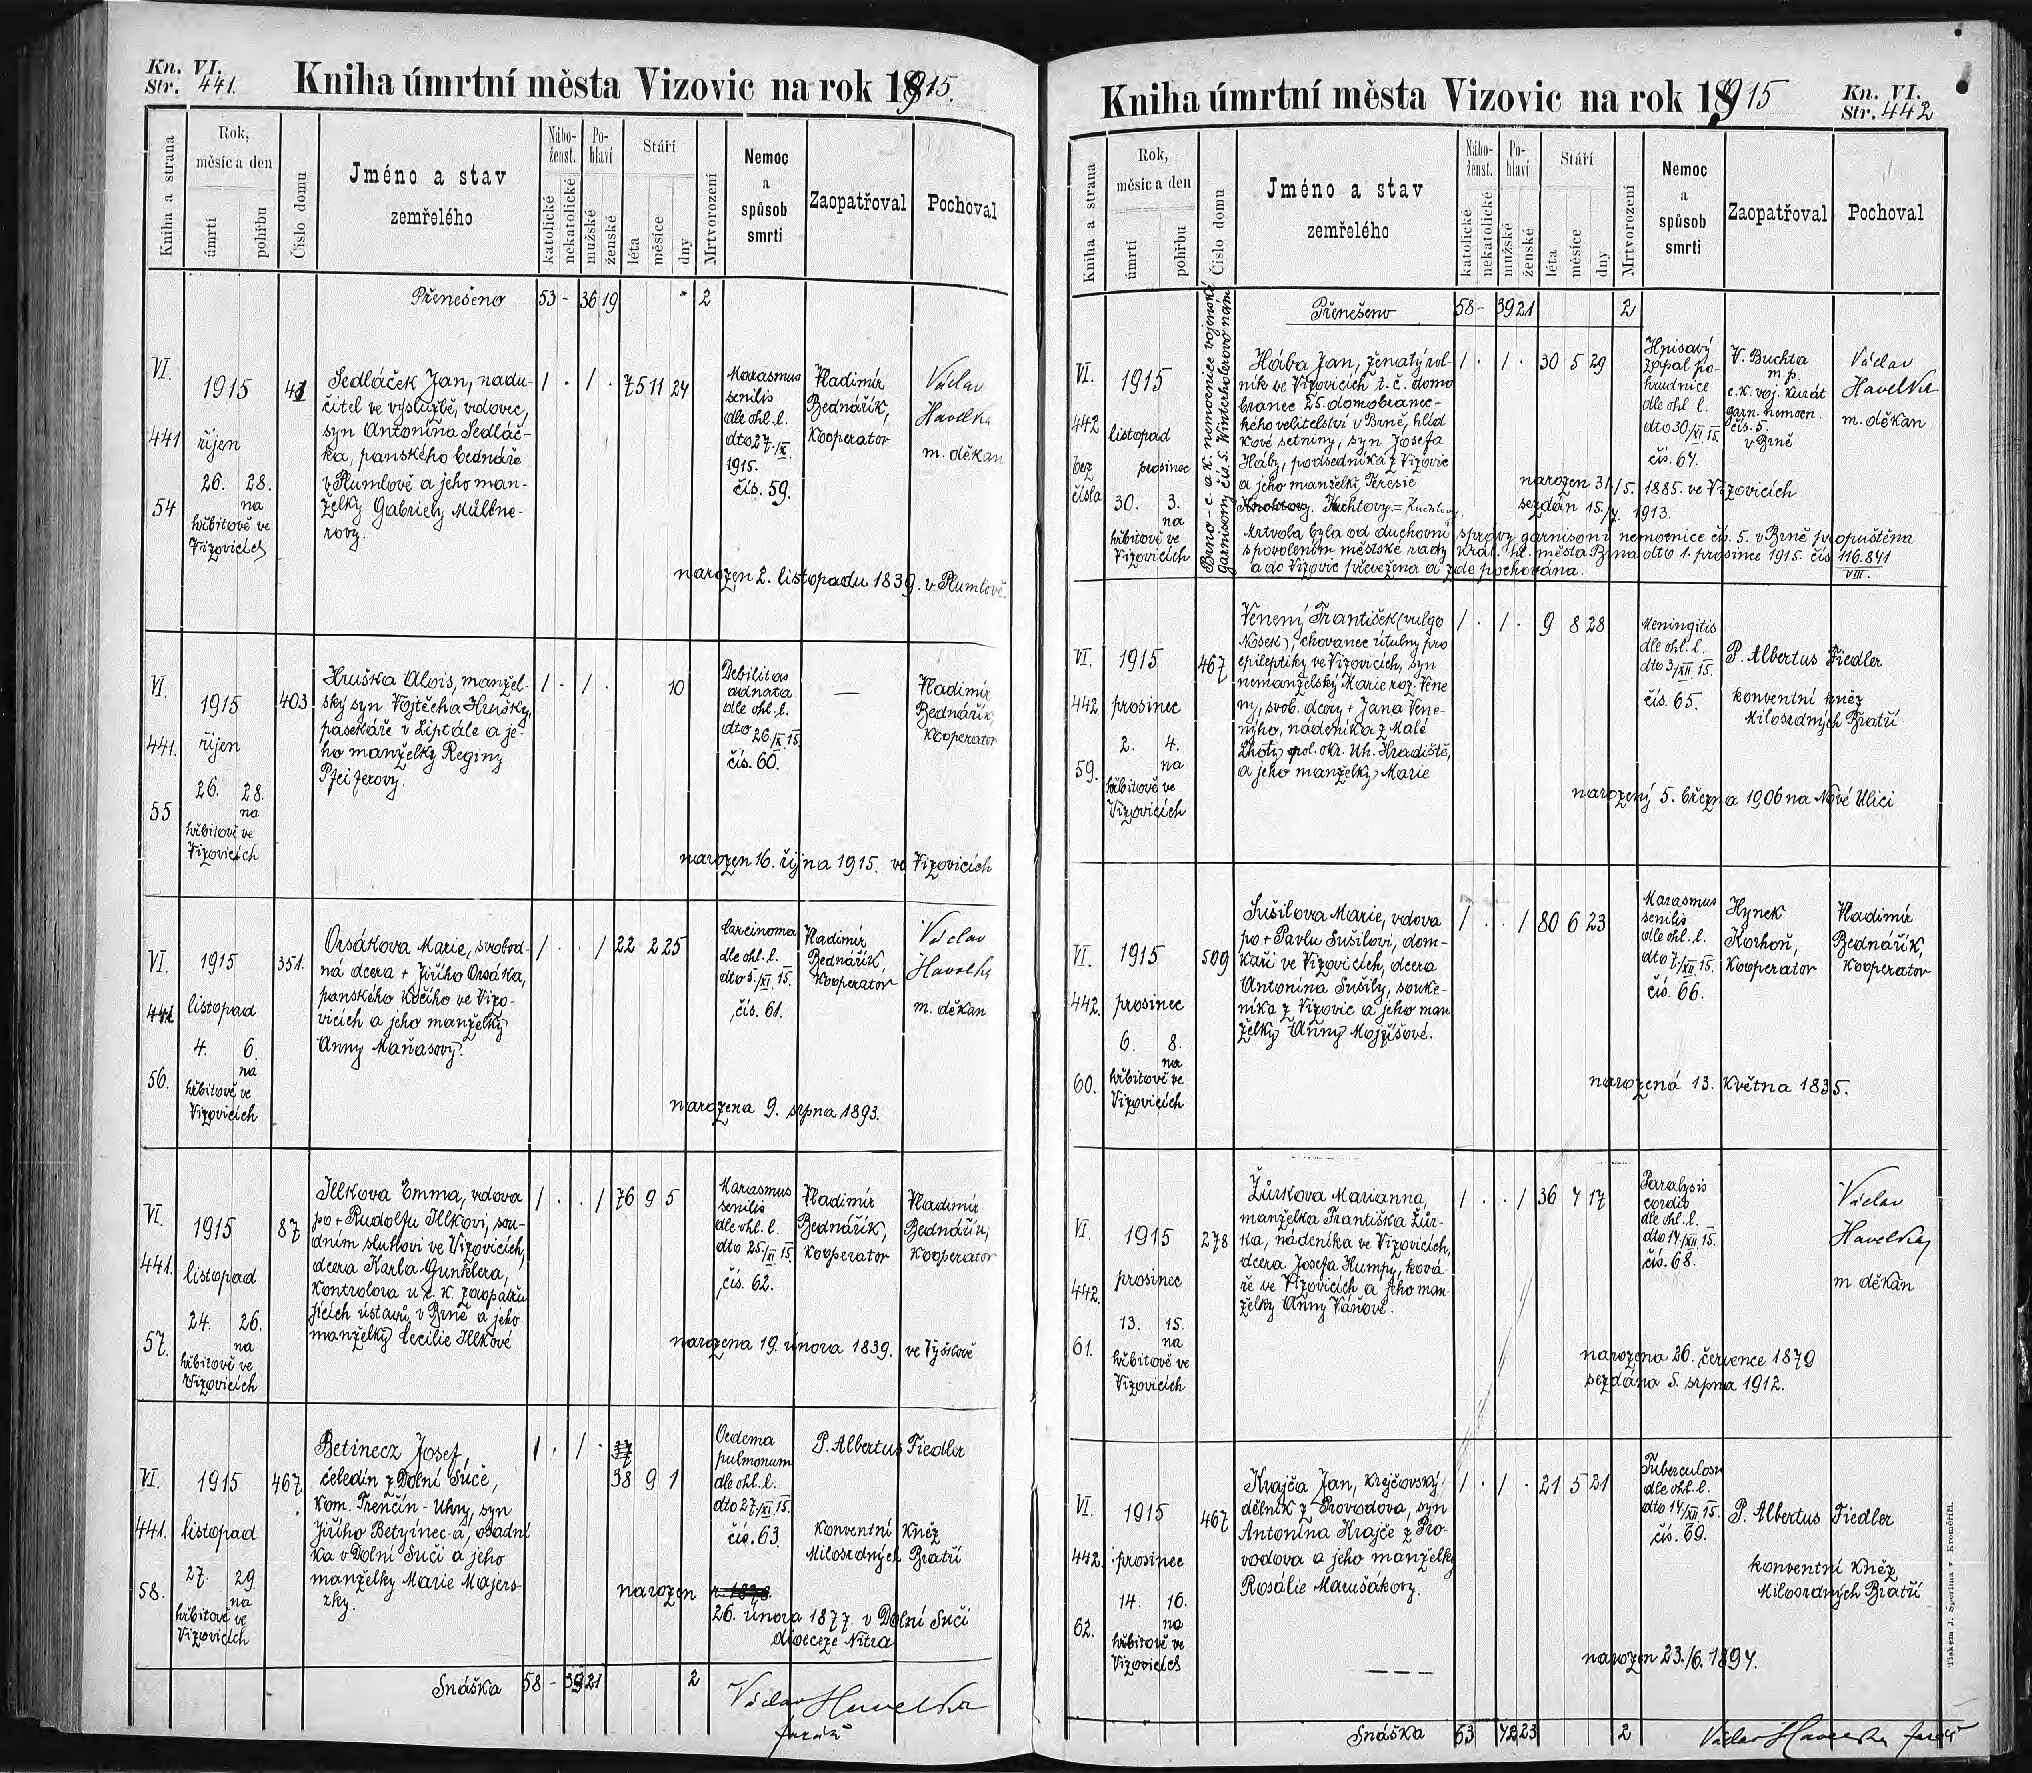 Kn. VI.
Str. 441.
Kniha úmrtní města Vizovic na rok 1915.
Kniha a strana
Rok,
měsíc a den
úmrtí
pohřbu
Číslo domu
Jméno a stav
zemřelého
Nábo-
ženst.
katolické
nekatolické
Po-
hlaví
mužské
ženské
Stáří
léta
měsíce
dny
Mrtvorození
Nemoc
a
spůsob
smrti
Zaopatřoval
Pochoval
Přenešeno 53 - 36 19 2
VI.
441
54
1915
říjen
26. 28.
na
hřbitově ve
Vizovicích
41
Sedláček Jan, nadu-
čitel ve výslužbě, vdovec,
syn Antonína Sedláč-
ka, panského bednáře
v Plumlově a jeho man-
želky Gabriely Müllne-
rovy.
1 . 1 . 75 11 24
Marasmus
senilis
dle ohl. l.
dto 27./X.
1915.
čís. 59.
Vladimír
Bednářík,
Kooperator
Václav
Havelka
m. děkan
narozen 2. listopadu 1839. v Plumlově.
VI.
441.
55
1915
říjen
26. 28.
na
hřbitově ve
Vizovicích
403
Hruška Alois, manžel-
ský syn Vojtěcha Hrušky,
pasekáře v Liptále a je-
ho manželky Reginy
Pfeiferovy.
1 . 1 . 10
Debilitas
adnata
dle ohl. l.
dto 26/X. 15.
čís. 60.
—
Vladimír
Bednářík,
Kooperator
narozen 16. října 1915. ve Vizovicích
VI.
441
56.
1915
listopad
4. 6.
na
hřbitově ve
Vizovicích
351.
Orsákova Marie, svobod-
ná dcera + Jiřího Orsáka,
panského kočího ve Vizo-
vicích a jeho manželky
Anny Maňasovy.
1 . . 1 22 2 25
Carcinoma
dle ohl. l.
dto 5./XI. 15.
čís. 61.
Vladimír
Bednářík
Kooperator
Václav
Havelka
m. děkan
narozena 9. srpna 1893.
VI.
441.
57.
1915
listopad
24. 26.
na
hřbitově ve
Vizovicích
87
Illkova Emma, vdova
po + Rudolfu Illkovi, sou-
dním sluhovi ve Vizovicích,
dcera Karla Gunklera,
kontrolora u c. k. zaopatřu-
jících ústavů v Brně a jeho
manželky Cecilie Illkové
1 . . 1 76 9 5
Marasmus
senilis
dle ohl. l.
dto 25/XI. 15.
čís. 62.
Vladimír
Bednářík,
Kooperator
Vladimír
Bednářík,
Kooperator
narozena 19. února 1839. ve
VI.
441.
58.
1915
listopad
27. 29
na
hřbitově ve
Vizovicích
467.
Betinecz Josef,
čeledín z Dolní Súče,
kom. Trenčín - Uhry, syn
Jiřího Betyinec-a, osadní-
ka v Dolní Suči a jeho
manželky Marie Majers-
zky.
1 . 1 . 38 9 1
Oedema
pulmonum
dle ohl. l.
dto 27/XI. 15.
čís. 63
P. Albertus Fiedler
Konventní Kněz
Milosrdných Bratří
narozen
26. února 1877. v Dolní Suči
dioeceze Nitra
Snáška 58 - 39 21 2
Václav Havelka
farář
Kniha úmrtní města Vizovic na rok 1915
Kn. VI.
Str. 442
Kniha a strana
Rok,
měsíc a den
úmrtí
pohřbu
Číslo domu
Jméno a stav
zemřelého
Nábo-
ženst.
katolické
nekatolické
Po-
hlaví
mužské
ženské
Stáří
léta
měsíce
dny
Mrtvorození
Nemoc
a
spůsob
smrti
Zaopatřoval
Pochoval
Přenešeno 58 - 39 21 2
VI.
442
bez
čísla
1915
listopad
prosinec
30. 3.
na
hřbitově ve
Vizovicích
Brno - c. a k. nemocnice vojenská
garnisony čís. 5. Winterhollerovo nám.
Hába Jan, ženatý rol-
ník ve Vizovicích t. č. domo
branec 25. domobranec-
kého velitelství v Brně, hlíd
kové setniny, syn Josefa
Háby, podsedníka z Vizovic
a jeho manželky Teresie
Kuchtovy = Kuchtovy.
1 . 1 . 30 5 29
Hnisavý
zápal po-
hrudnice
dle ohl l.
dto 30/XI 15.
čís. 64.
V. Buchta
m. p.
c. k. voj. kurát
garn. nemocn.
čís. 5.
v Brně
Václav
Havelka
m. děkan
narozen 31./5. 1885. ve Vizovicích
sezdán 15./7. 1913.
Mrtvola byla od duchovní správy garnisoní nemocnice čís. 5. v Brně propuštěna
s povolením městské rady král. hl. města Brna dto 1. prosince 1915. čís 116.841
VIII.
a do Vizovic převezena a zde pochována.
VI.
442
59.
1915
prosinec
2. 4.
na
hřbitově ve
Vizovicích
467
Venený František (vulgo
Nosek), chovanec útulny pro
epileptiky ve Vizovicích, syn
nemanželský Marie roz. Vene
ny, svob. dcery + Jana Vene-
ného, nádeníka z Malé
Lhoty pol. okr. Uh. Hradiště,
a jeho manželky Marie
1 . 1 . 9 8 28
Meningitis
dle ohl. l.
dto 3/XII 15.
čís. 65.
P. Albertus Fiedler
konventní kněz
Milosrdných Bratří
narozený 5. března 1906 na Nové Ulici
VI.
442.
60.
1915
prosinec
6. 8.
na
hřbitově ve
Vizovicích
509
Sušilova Marie, vdova
po + Pavlu Sušilovi, dom-
kaři ve Vizovicích, dcera
Antonína Sušily, souke-
níka z Vizovic a jeho man
želky Anny Mojžíšové.
1 . . 1 80 6 23
Marasmus
senilis
dle ohl. l.
dto 7/XII. 15.
čís. 66.
Hynek
Korhoň,
Kooperator
Vladimír
Bednářík,
Kooperator
narozená 13. května 1835.
VI.
442.
61.
1915
prosinec
13. 15.
na
hřbitově ve
Vizovicích
278
Žůrkova Marianna,
manželka Františka Žůr-
ka, nádeníka ve Vizovicích,
dcera Josefa Humpy, ková-
ře ve Vizovicích a jeho man-
želky Anny Váňové.
1 . . 1 36 4 17
Paralysis
cordis
dle ohl. l.
dto 14/XII. 15.
čís. 68.
Václav
Havelka
m děkan
narozena 26. července 1879
sezdána 5. srpna 1912.
VI.
442.
62.
1915
prosinec
14. 16.
na
hřbitově ve
Vizovicích
467
Krajča Jan, krejčovský
dělník z Provodova, syn
Antonína Krajče z Pro-
vodova a jeho manželky
Rosálie Marušákovy.
1 . 1 . 21 5 21
Tuberculosa
dle ohl. l.
dto 14/XII 15.
čís. 69.
P. Albertus Fiedler
konventní Kněz
Milosrdných Bratří
narozen 23./6. 1894.
Snáška 63 42 23 2
Václav Havelka farář
Tiskem J. Sperlína v Kroměříži.